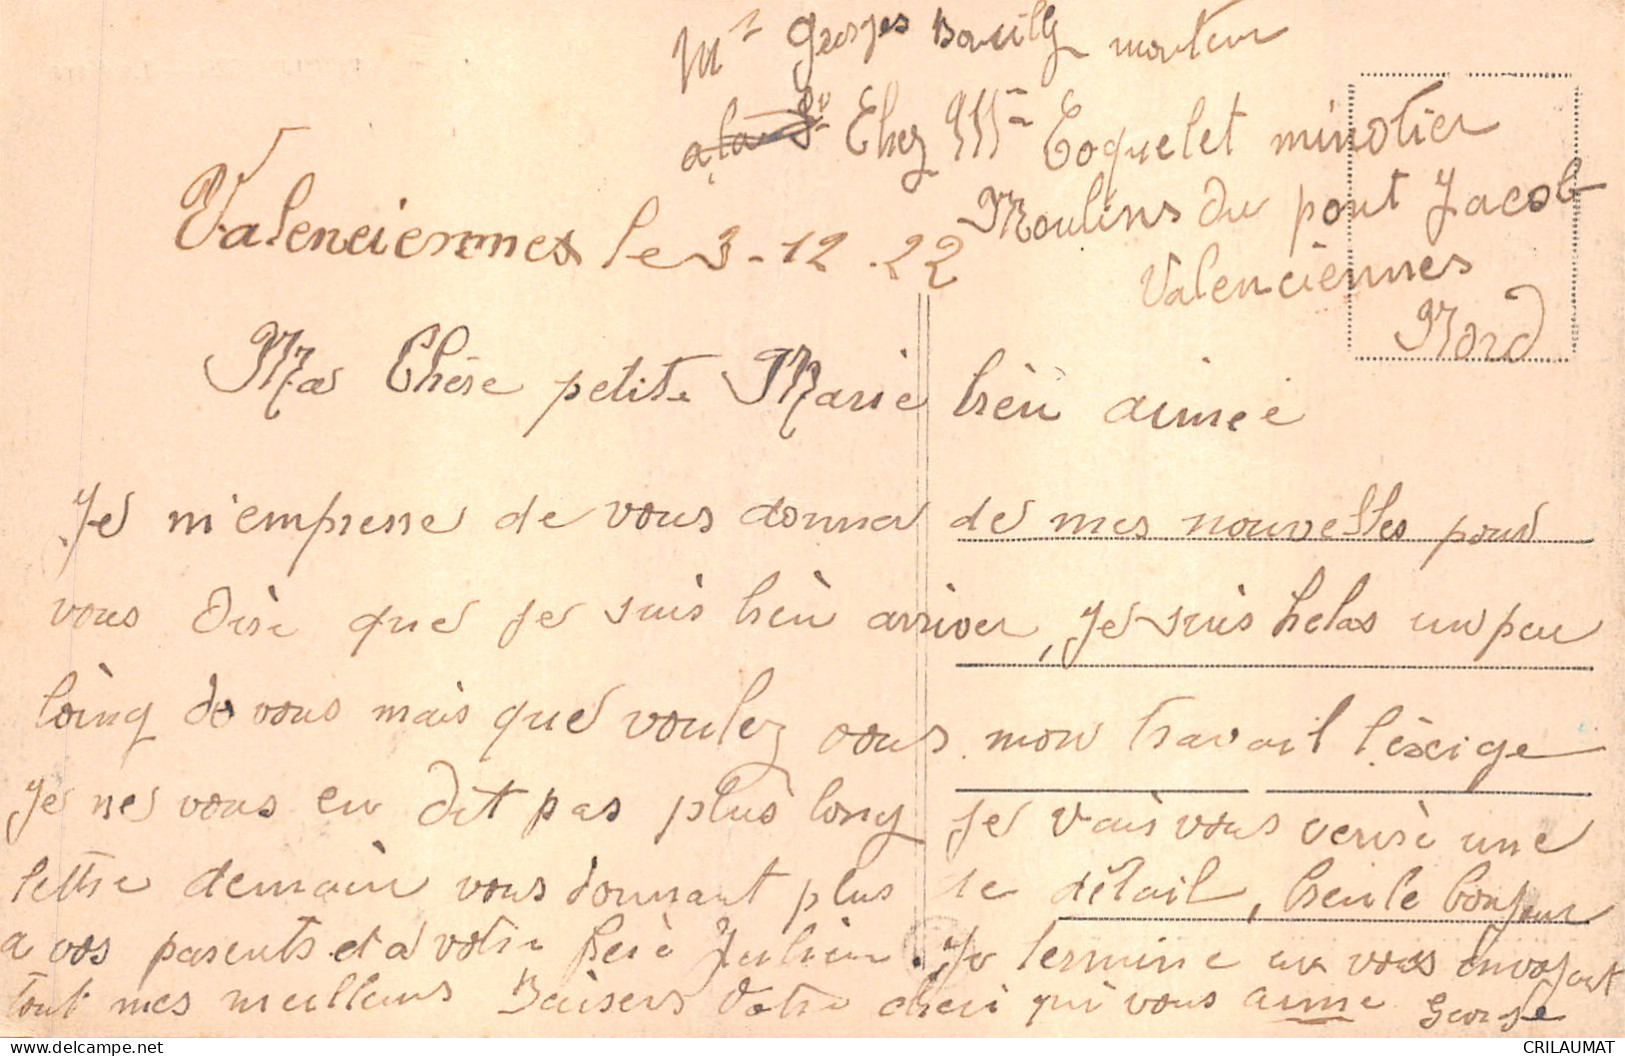 Mr Georges Bouilly monteur
Chez Mr Coquelet minotier
Moulins du pont Jacob
Valenciennes
Nord
Valenciennes le 3-12.22
Ma Chère petite Marie bièn aimée
Je m'empresse de vous donner de mes nouvelles pour
vous dire que je suis bièn arriver, je suis helas un peu
loing de vous mais que voulez vous. mon travail l'èxige
je ne vous en dit pas plus long je vais vous ecrire une
lettre demain vous donnant plus de détail, bien le bonjour
a vos parents et à votre frere Julien. Je termine en vous envoyant
tout mes meilleurs Baisers Votre cheri qui vous aime George
CRILAUMAT